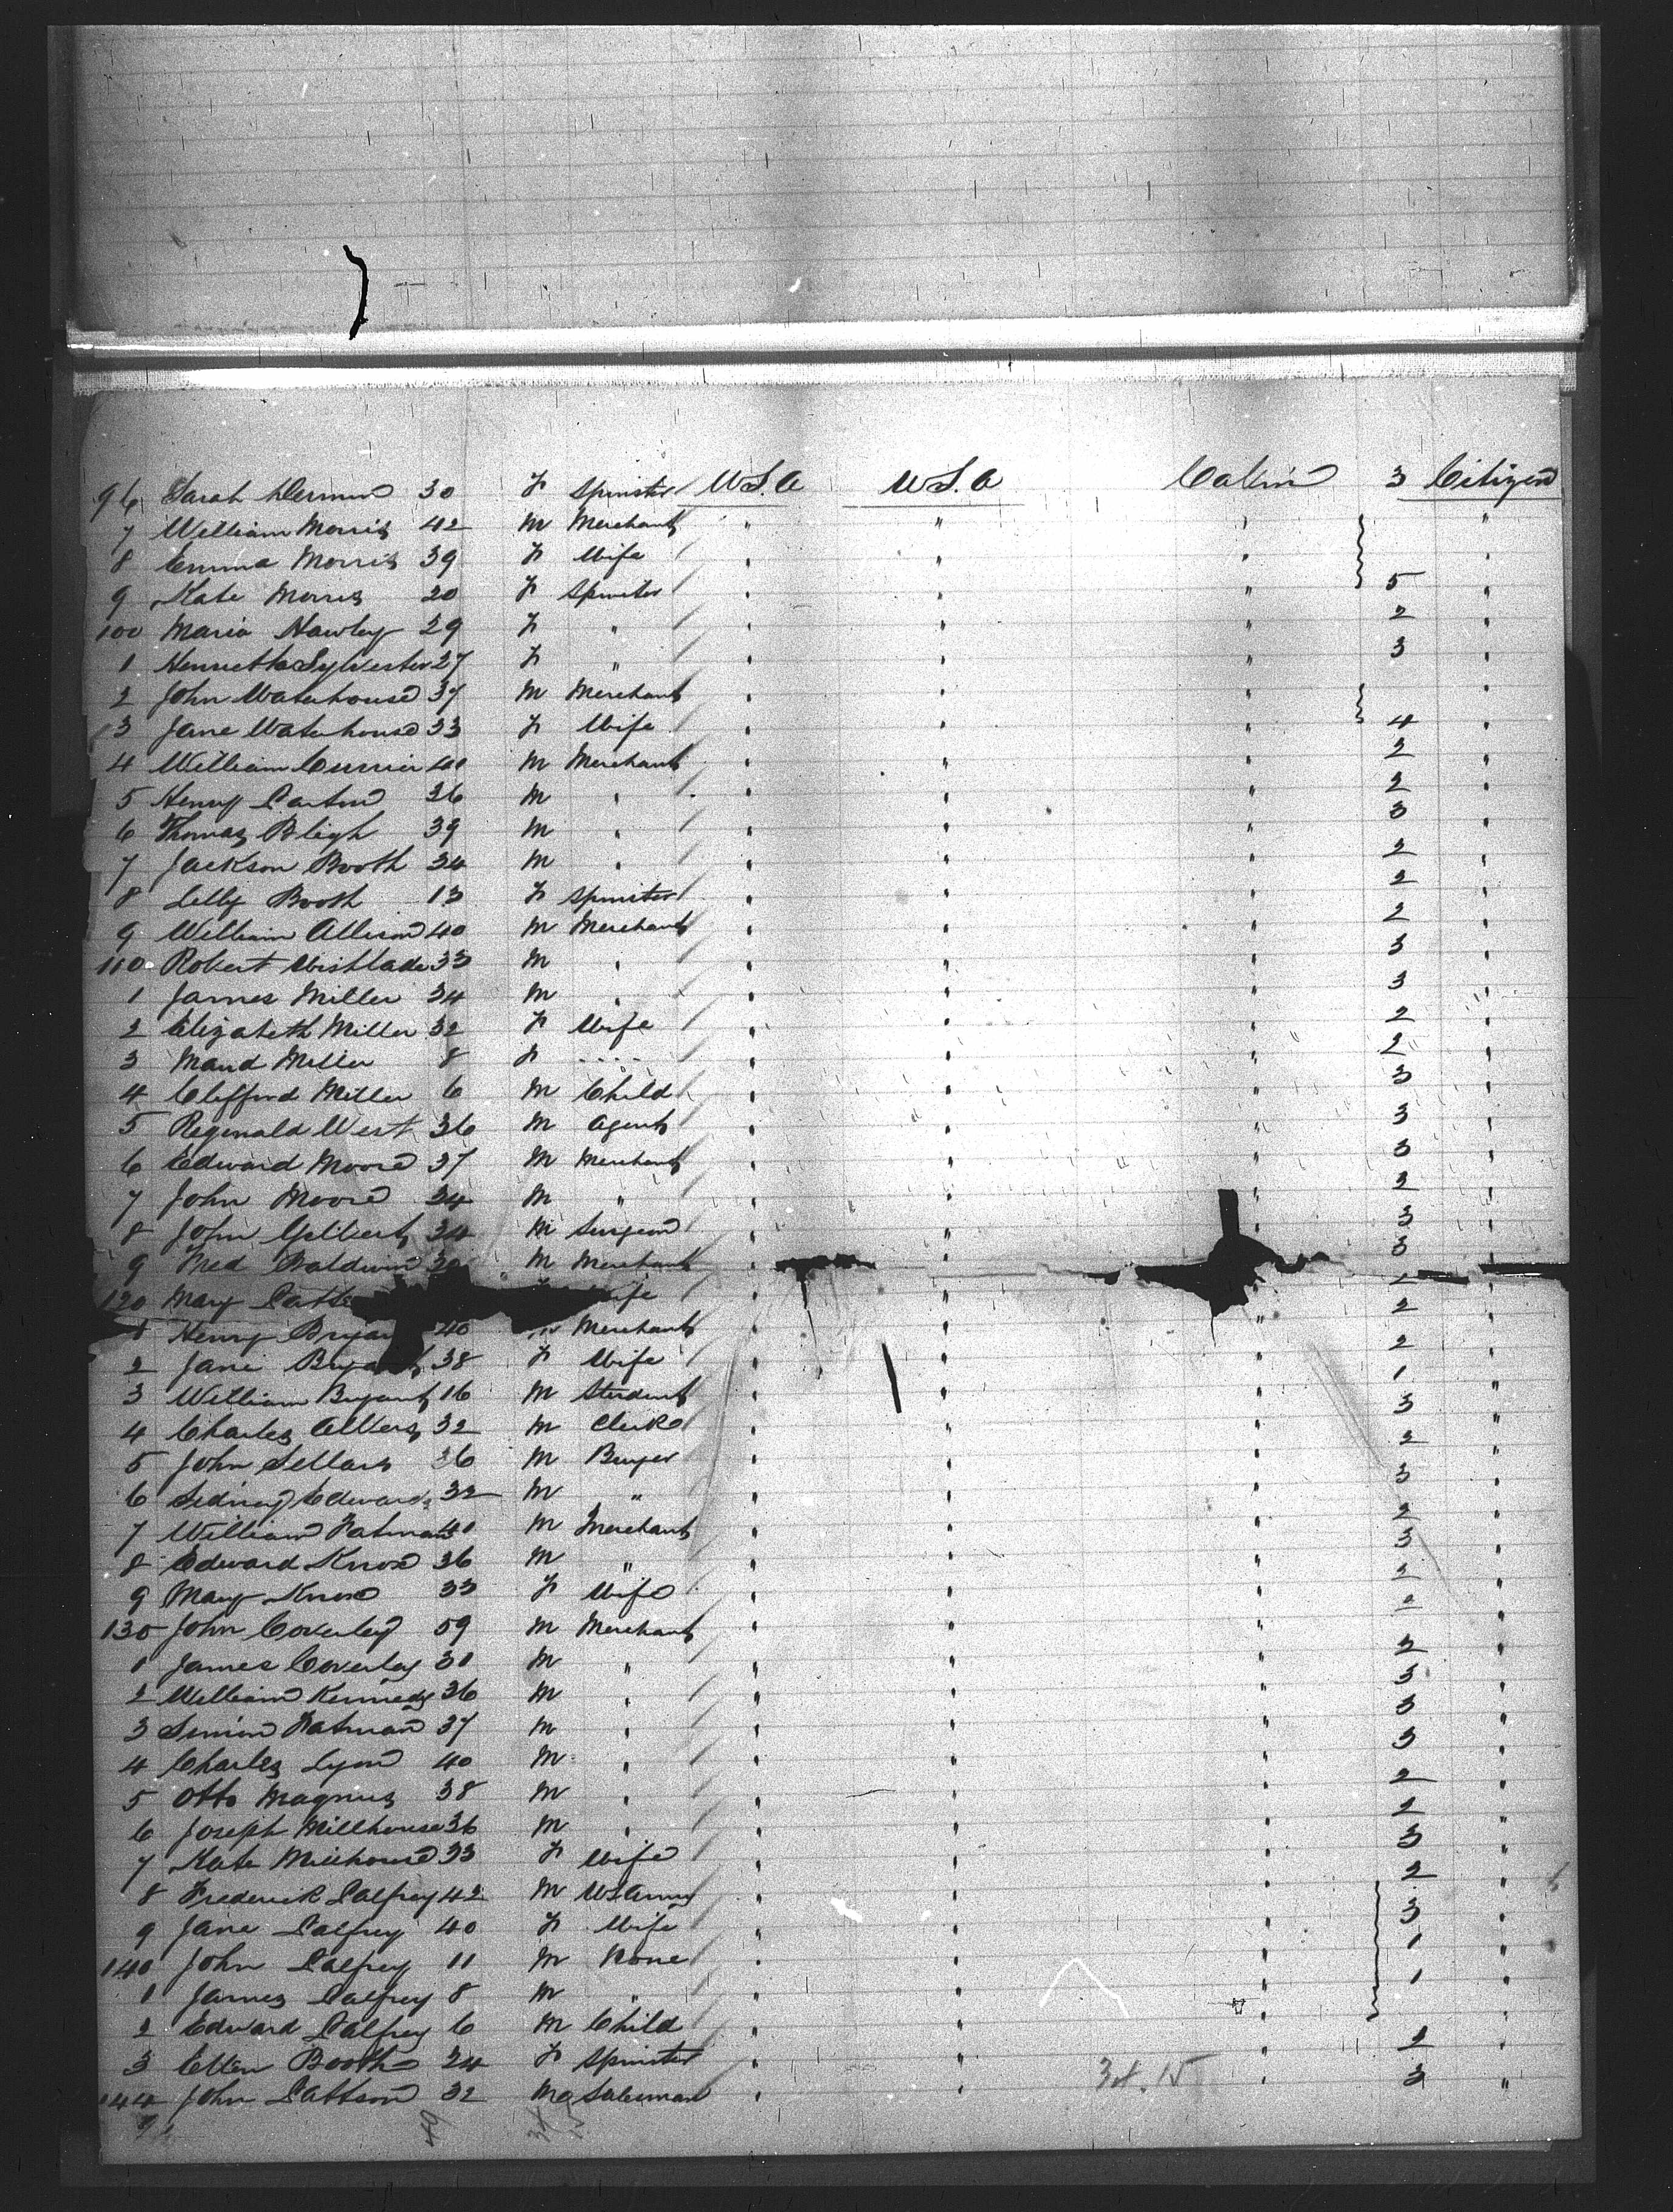 96 Sarah 30 F Spinster U.S.A U.S.A Cabin 3 Citizen
7 William Morris 42 M Merchant " " " "
8 Emma Morris 39 F Wife " " " "
9 Kate Morris 20 F Spinster " " " 5 "
100 Maria Hawley 29 F " " " " 2 "
1 Henrietta Sylvester 27 F " " " " 3 "
2 John Waterhouse 37 M Merchant " " " "
3 Jane Waterhouse 33 F Wife " " " 4 "
4 William Currier 40 M Merchant " " " 2 "
5 Henry 36 M " " " " 2 "
6 Thomas Bligh 39 M " " " " 3 "
7 Jackson Booth 34 M " " " " 2 "
8 Lilly Booth 13 F Spinster " " " 2 "
9 William Allison 40 M Merchant " " " 2 "
110 Robert 33 M " " " " 3 "
1 James Miller 34 M " " " " 3 "
2 Elizabeth Miller 32 F Wife " " " 2 "
3 Maud Miller 8 F .... " " " 2 "
4 Clifford Miller 6 M Child " " " 3 "
5 Reginald West 36 M Agent " " " 3 "
6 Edward Moore 37 M Merchant " " " 3 "
7 John Moore 34 M " " " " 2 "
8 John Gilbert 34 M Surgeon " " " 3 "
9 Fred Baldwin M Merchant " " 3 "
120 Mary
1 Henry 40 Merchant " " " 2 "
2 Jane 38 F Wife " " " 2 "
3 William Bryant 16 M Student " " " 1 "
4 Charles 32 M Clerk " " " 3 "
5 John Sellars 36 M Buyer " " " 2 "
6 Sidney Edwards 32 M " " " " 3 "
7 William Fatman 40 M Merchant " " " 2 "
8 Edward Knox 36 M " " " " 3 "
9 Mary Knox 33 F Wife " " " 2 "
130 John Coverley 59 M Merchant " " " 2 "
1 James Coverley 31 M " " " " 2 "
2 William Kennedy 36 M " " " " 3 "
3 Simon Fatman 37 M " " " " 3 "
4 Charles Lyon 40 M " " " " 3 "
5 Otto Magnus 38 M " " " " 2 "
6 Joseph Millhouse 36 M " " " " 2 "
7 Kate Millhouse 33 F Wife " " " 3 "
8 Frederick Palfrey 42 M US Army " " " 2 "
9 Jane Palfrey 40 F Wife " " " 3 "
140 John Palfrey 11 M None " " " 1 "
1 James Palfrey 8 M " " " " 1 "
2 Edward Palfrey 6 M Child " " " "
3 Ellen Booth 24 F Spinster " " " 2 "
144 John Pattson 32 M Salesman " " " 3 "
34.15
49 34 15